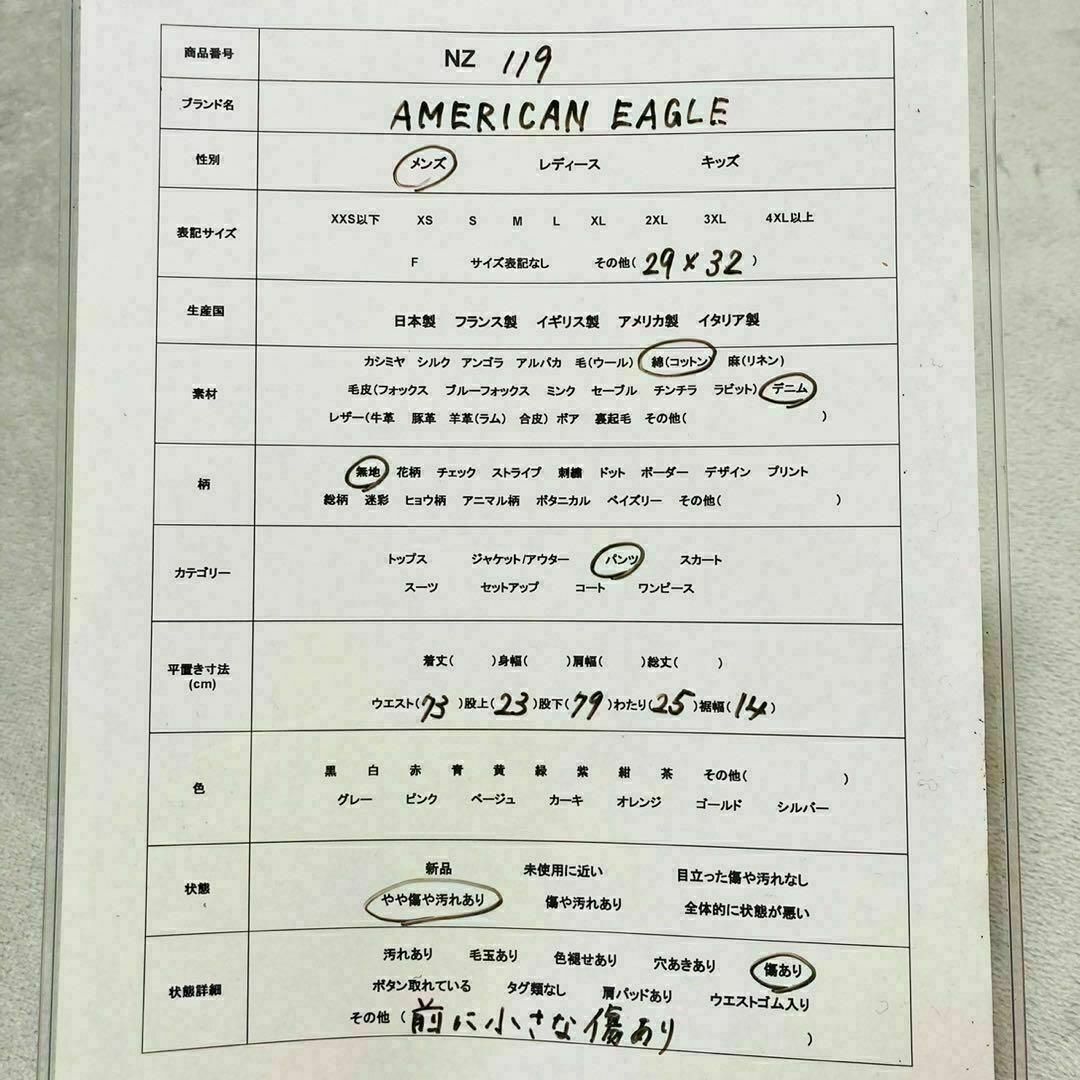 商品番号 NZ 119
ブランド名 AMERICAN EAGLE
性別 メンズ レディース キッズ
表記サイズ XXS以下 XS S M L XL 2XL 3XL 4XL以上
F サイズ表記なし その他( 29×32 )
生産国 日本製 フランス製 イギリス製 アメリカ製 イタリア製
素材 カシミヤ シルク アンゴラ アルパカ 毛(ウール) 綿(コットン) 麻(リネン)
毛皮(フォックス ブルーフォックス ミンク セーブル チンチラ ラビット) デニム
レザー(牛革 豚革 羊革(ラム) 合皮) ボア 裏起毛 その他( )
柄 無地 花柄 チェック ストライプ 刺繍 ドット ボーダー デザイン プリント
総柄 迷彩 ヒョウ柄 アニマル柄 ボタニカル ペイズリー その他( )
カテゴリー トップス ジャケット/アウター パンツ スカート
スーツ セットアップ コート ワンピース
平置き寸法 (cm) 着丈( )身幅( )肩幅( )総丈( )
ウエスト(73)股上(23)股下(79)わたり(25)裾幅(14)
色 黒 白 赤 青 黄 緑 紫 紺 茶 その他( )
グレー ピンク ベージュ カーキ オレンジ ゴールド シルバー
状態 新品 未使用に近い 目立った傷や汚れなし
やや傷や汚れあり 傷や汚れあり 全体的に状態が悪い
状態詳細 汚れあり 毛玉あり 色褪せあり 穴あきあり 傷あり
ボタン取れている タグ類なし 肩パッドあり ウエストゴム入り
その他 ( 前に小さな傷あり )